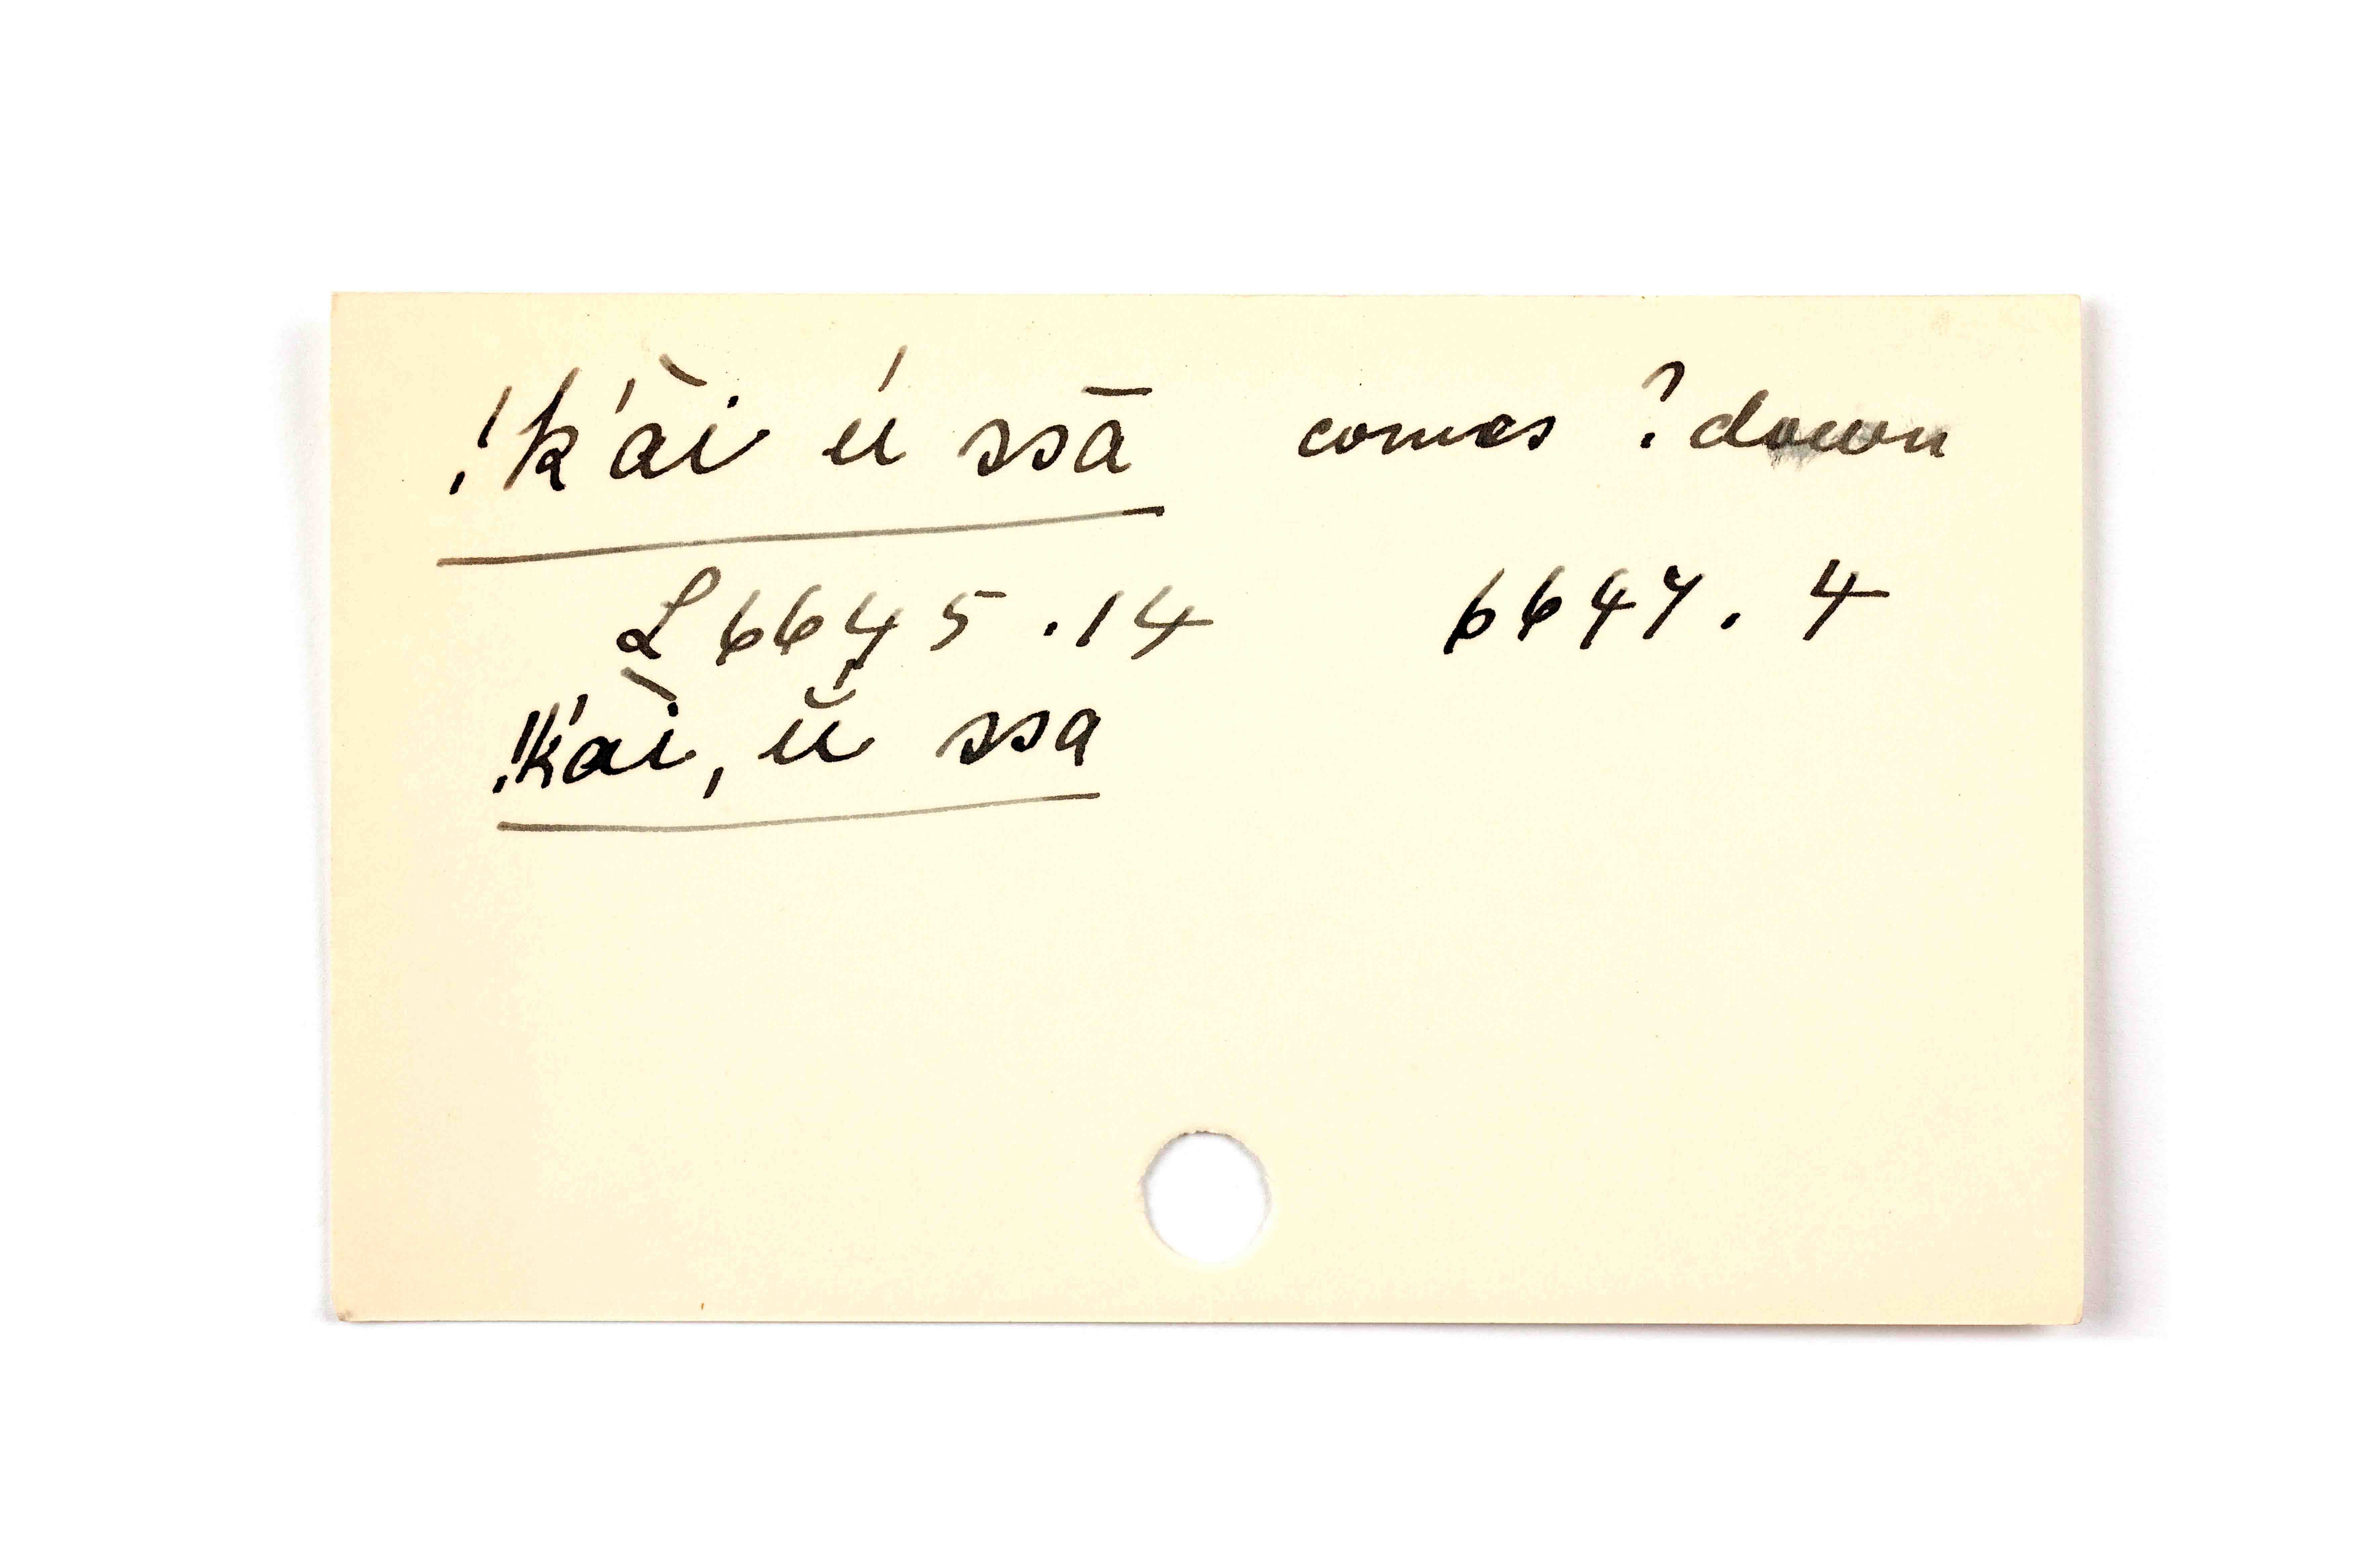 !k'ài ú ssā comes ? down
L 6645.14 6647.4
!k'ài, ŭ ssa